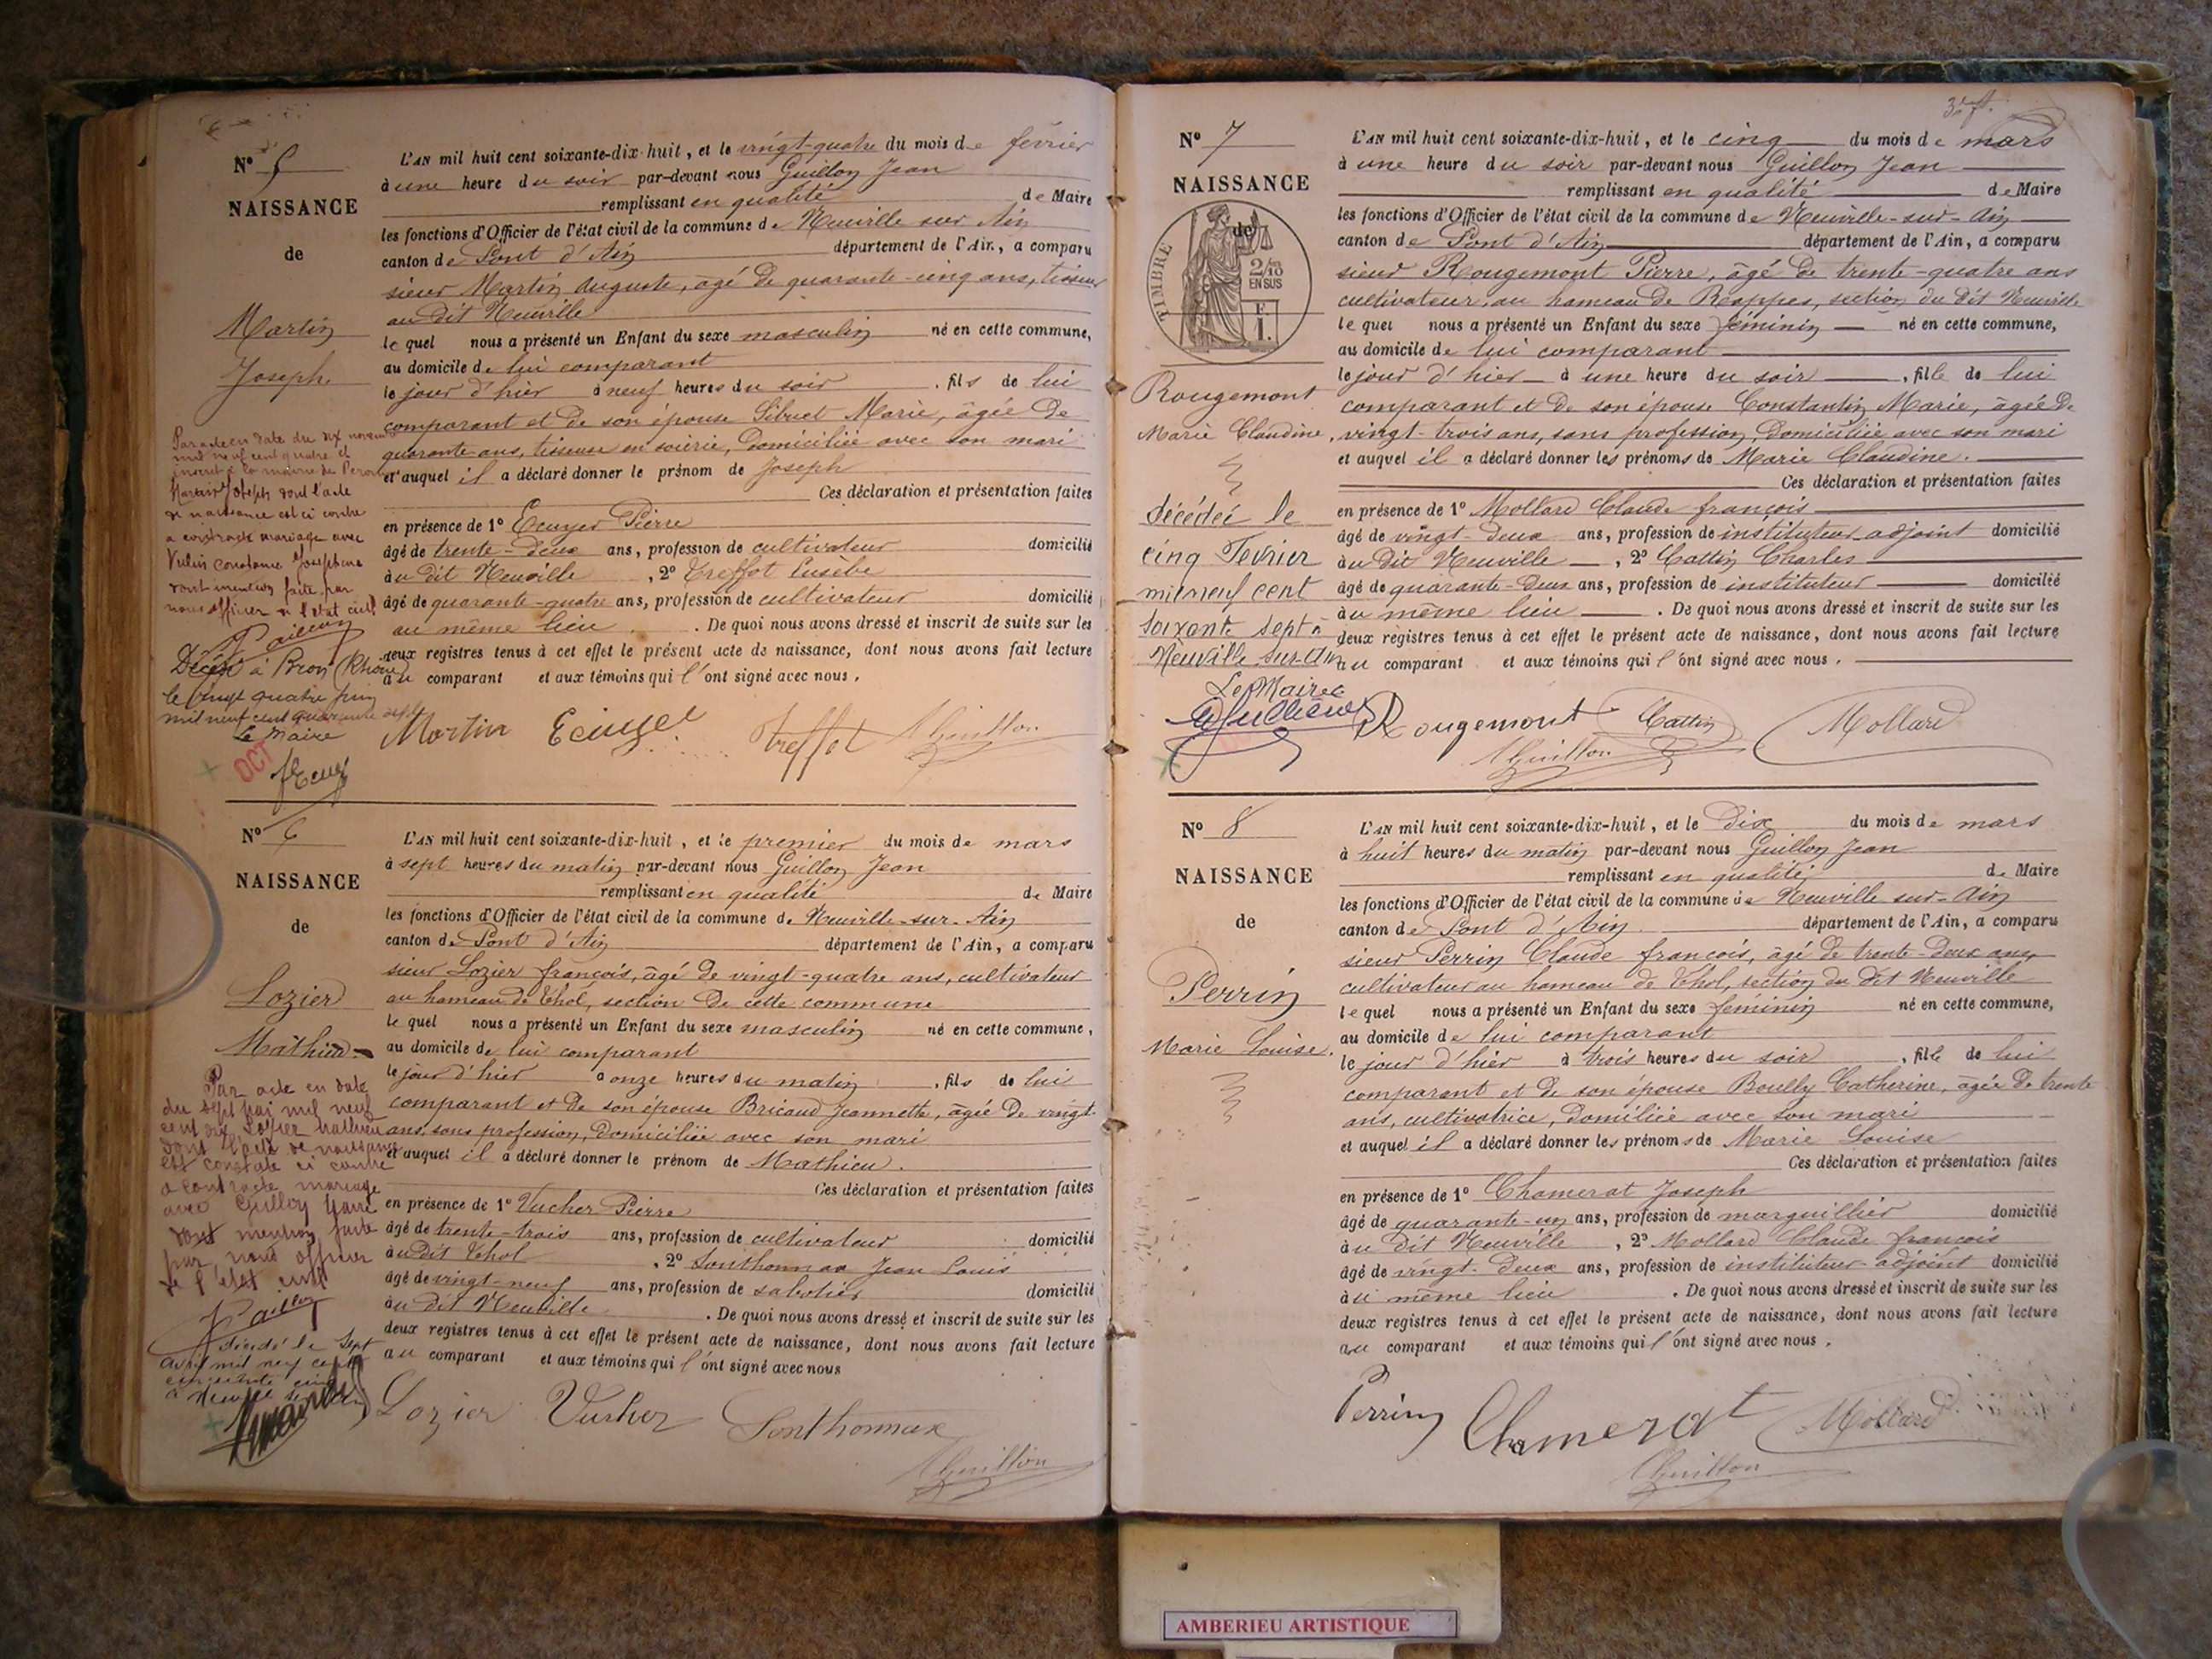 N° 5
NAISSANCE
de
Martin
Joseph
Par acte en date du dix novembre
mil neuf cent quatre et
inscrit à la mairie de
Martin Joseph dont l'acte
de naissance est ci contre
a contracté mariage avec
Vulin Constance Joséphine
dont mention faite par
nous officier de l'état civil
Décédé à Bron (Rhône)
le vingt quatre juin
mil neuf cent quarante sept
Le Maire
OCT
L'AN mil huit cent soixante-dix-huit, et le vingt-quatre du mois de février
à une heure du soir par-devant nous Guillon Jean
remplissant en qualité de Maire
les fonctions d'Officier de l'état civil de la commune de Neuville sur Ain
canton de Pont d'Ain département de l'Ain, a comparu
sieur Martin Auguste, âgé de quarante-cinq ans, tisseur
au dit Neuville
lequel nous a présenté un Enfant du sexe masculin né en cette commune,
au domicile de lui comparant
le jour d'hier à neuf heures du soir, fils de lui
comparant et de son épouse Sibuet Marie, âgée de
quarante ans, tisseuse en soierie, domiciliée avec son mari
et auquel il a déclaré donner le prénom de Joseph
Ces déclaration et présentation faites
en présence de 1° Ecuyer Pierre
âgé de trente-deux ans, profession de cultivateur domicilié
au dit Neuville, 2° Treffot Eusèbe
âgé de quarante-quatre ans, profession de cultivateur domicilié
au même lieu. De quoi nous avons dressé et inscrit de suite sur les
deux registres tenus à cet effet le présent acte de naissance, dont nous avons fait lecture
au comparant et aux témoins qui l'ont signé avec nous.
Martin Ecuyer Treffot Guillon
N° 6
NAISSANCE
de
Lozier
Mathieu
Par acte en date
du sept mai mil neuf
cent dix Lozier Mathieu
dont l'acte de naissance
est constaté ci contre
a contracté mariage
avec Guillon Marie
dont mention faite
par nous officier
de l'état civil
Décédé le sept
avril mil neuf cent
cinquante cinq
à Neuville sur Ain
L'AN mil huit cent soixante-dix-huit, et le premier du mois de mars
à sept heures du matin par-devant nous Guillon Jean
remplissant en qualité de Maire
les fonctions d'Officier de l'état civil de la commune de Neuville-sur-Ain
canton de Pont d'Ain département de l'Ain, a comparu
sieur Lozier françois, âgé de vingt-quatre ans, cultivateur
au hameau de Thol, section de cette commune
lequel nous a présenté un Enfant du sexe masculin né en cette commune,
au domicile de lui comparant
le jour d'hier à onze heures du matin, fils de lui
comparant et de son épouse Bricaud Jeannette, âgée de vingt
ans, sans profession, domiciliée avec son mari
et auquel il a déclaré donner le prénom de Mathieu.
Ces déclaration et présentation faites
en présence de 1° Vucher Pierre
âgé de trente-trois ans, profession de cultivateur domicilié
au dit Thol, 2° Sonthonnax Jean Louis
âgé de vingt-neuf ans, profession de sabotier domicilié
au dit Neuville. De quoi nous avons dressé et inscrit de suite sur les
deux registres tenus à cet effet le présent acte de naissance, dont nous avons fait lecture
au comparant et aux témoins qui l'ont signé avec nous
Lozier Vucher Sonthonnax
Guillon
N° 7
NAISSANCE
de
TIMBRE
2/10
EN SUS
F.
1.
Rougemont
Marie Claudine.
décédée le
cinq Fevrier
mil neuf cent
soixante sept à
Neuville-sur-Ain
Le Maire
L'AN mil huit cent soixante-dix-huit, et le cinq du mois de mars
à une heure du soir par-devant nous Guillon Jean
remplissant en qualité de Maire
les fonctions d'Officier de l'état civil de la commune de Neuville-sur-Ain
canton de Pont d'Ain département de l'Ain, a comparu
sieur Rougemont Pierre, âgé de trente-quatre ans
cultivateur, au hameau de Résappes, section du dit Neuville
lequel nous a présenté un Enfant du sexe féminin né en cette commune,
au domicile de lui comparant
le jour d'hier à une heure du soir, fille de lui
comparant et de son épouse Constantin Marie, âgée de
vingt-trois ans, sans profession, domiciliée avec son mari
et auquel il a déclaré donner les prénoms de Marie Claudine.
Ces déclaration et présentation faites
en présence de 1° Mollard Claude françois
âgé de vingt-deux ans, profession de instituteur adjoint domicilié
au dit Neuville, 2° Cattin Charles
âgé de quarante-deux ans, profession de instituteur domicilié
au même lieu. De quoi nous avons dressé et inscrit de suite sur les
deux registres tenus à cet effet le présent acte de naissance, dont nous avons fait lecture
au comparant et aux témoins qui l'ont signé avec nous.
Rougemont Cattin Mollard
Guillon
N° 8
NAISSANCE
de
Perrin
Marie Louise.
L'AN mil huit cent soixante-dix-huit, et le dix du mois de mars
à huit heures du matin par-devant nous Guillon Jean
remplissant en qualité de Maire
les fonctions d'Officier de l'état civil de la commune de Neuville sur-Ain
canton de Pont d'Ain département de l'Ain, a comparu
sieur Perrin Claude françois, âgé de trente-deux ans,
cultivateur au hameau de Thol, section du dit Neuville
lequel nous a présenté un Enfant du sexe féminin né en cette commune,
au domicile de lui comparant
le jour d'hier à trois heures du soir, fille de lui
comparant et de son épouse Boully Catherine, âgée de trente
ans, cultivatrice, domiliée avec son mari
et auquel il a déclaré donner les prénoms de Marie Louise
Ces déclaration et présentation faites
en présence de 1° Chamerat Joseph
âgé de quarante-un ans, profession de marguillier domicilié
au dit Neuville, 2° Mollard Claude françois
âgé de vingt-deux ans, profession de instituteur-adjoint domicilié
au même lieu. De quoi nous avons dressé et inscrit de suite sur les
deux registres tenus à cet effet le présent acte de naissance, dont nous avons fait lecture
au comparant et aux témoins qui l'ont signé avec nous.
Perrin Chamerat Mollard
Guillon
AMBERIEU ARTISTIQUE